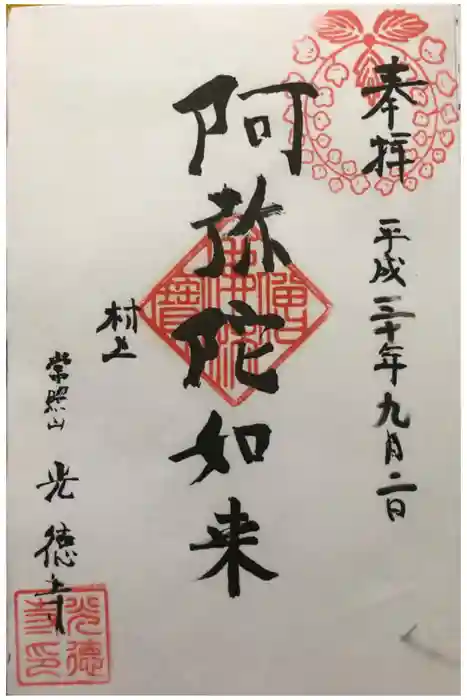 奉拝
平成三十年九月二日
阿弥陀如来
佛法僧寶
村上
常照山 光徳寺
光徳寺印